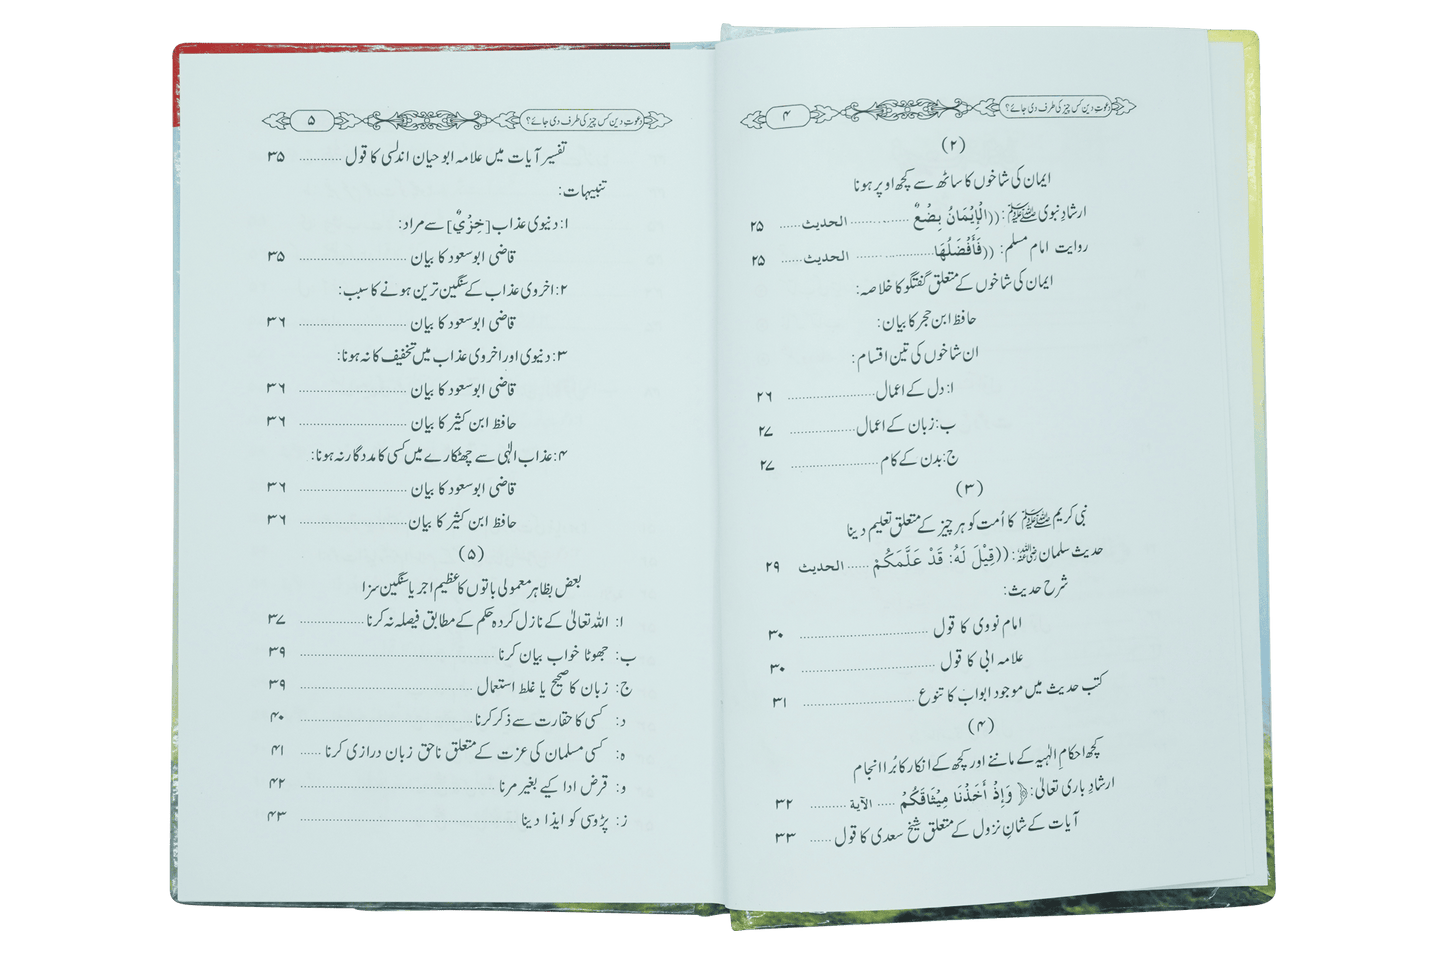 دعوتِ دین کس چیز کی طرف دی جائے؟ ۴
(۲)
ایمان کی شاخوں کا ساٹھ سے کچھ اوپر ہونا
ارشادِ نبوی ﷺ: ((الْإِيْمَانُ بِضْعٌ .................. الحديث ...... ۲۵
روایت امام مسلم: ((فَأَفْضَلُهَا .................. الحديث ...... ۲۵
ایمان کی شاخوں کے متعلق گفتگو کا خلاصہ:
حافظ ابن حجر کا بیان:
ان شاخوں کی تین اقسام:
ا: دل کے اعمال ........................ ۲۶
ب: زبان کے اعمال ................... ۲۷
ج: بدن کے کام ........................ ۲۷
(۳)
نبی کریم ﷺ کا اُمت کو ہر چیز کے متعلق تعلیم دینا
حدیث سلمان رضی اللہ عنہ: ((قِيْلَ لَهُ: قَدْ عَلَّمَكُمْ ...... الحديث ۲۹
شرح حدیث:
امام نووی کا قول ................................... ۳۰
علامہ ابی کا قول ................................... ۳۰
کتب حدیث میں موجود ابواب کا تنوع .............................. ۳۱
(۴)
کچھ احکامِ الٰہیہ کے ماننے اور کچھ کے انکار کا بُرا انجام
ارشادِ باری تعالیٰ: ﴿وَإِذْ أَخَذْنَا مِيْثَاقَكُمْ ..... الآية .......... ۳۲
آیات کے شانِ نزول کے متعلق شیخ سعدی کا قول ...... ۳۳
دعوتِ دین کس چیز کی طرف دی جائے؟ ۵
تفسیر آیات میں علامہ ابوحیان اندلسی کا قول ............ ۳۵
تنبیہات:
۱: دنیوی عذاب [خِزْيٌ] سے مراد:
قاضی ابوسعود کا بیان .............................. ۳۵
۲: اخروی عذاب کے سنگین ترین ہونے کا سبب:
قاضی ابوسعود کا بیان .............................. ۳۶
۳: دنیوی اور اخروی عذاب میں تخفیف کا نہ ہونا:
قاضی ابوسعود کا بیان .............................. ۳۶
حافظ ابن کثیر کا بیان .............................. ۳۶
۴: عذاب الٰہی سے چھٹکارے میں کسی کا مددگار نہ ہونا:
قاضی ابوسعود کا بیان .............................. ۳۶
حافظ ابن کثیر کا بیان .............................. ۳۶
(۵)
بعض بظاہر معمولی باتوں کا عظیم اجر یا سنگین سزا
ا: اللہ تعالیٰ کے نازل کردہ حکم کے مطابق فیصلہ نہ کرنا .................. ۳۷
ب: جھوٹا خواب بیان کرنا ...................................................... ۳۹
ج: زبان کا صحیح یا غلط استعمال ................................................ ۳۹
د: کسی کا حقارت سے ذکر کرنا ................................................ ۴۰
ہ: کسی مسلمان کی عزت کے متعلق ناحق زبان درازی کرنا ...... ۴۱
و: قرض ادا کیے بغیر مرنا ...................................................... ۴۲
ز: پڑوسی کو ایذا دینا ............................................................ ۴۳